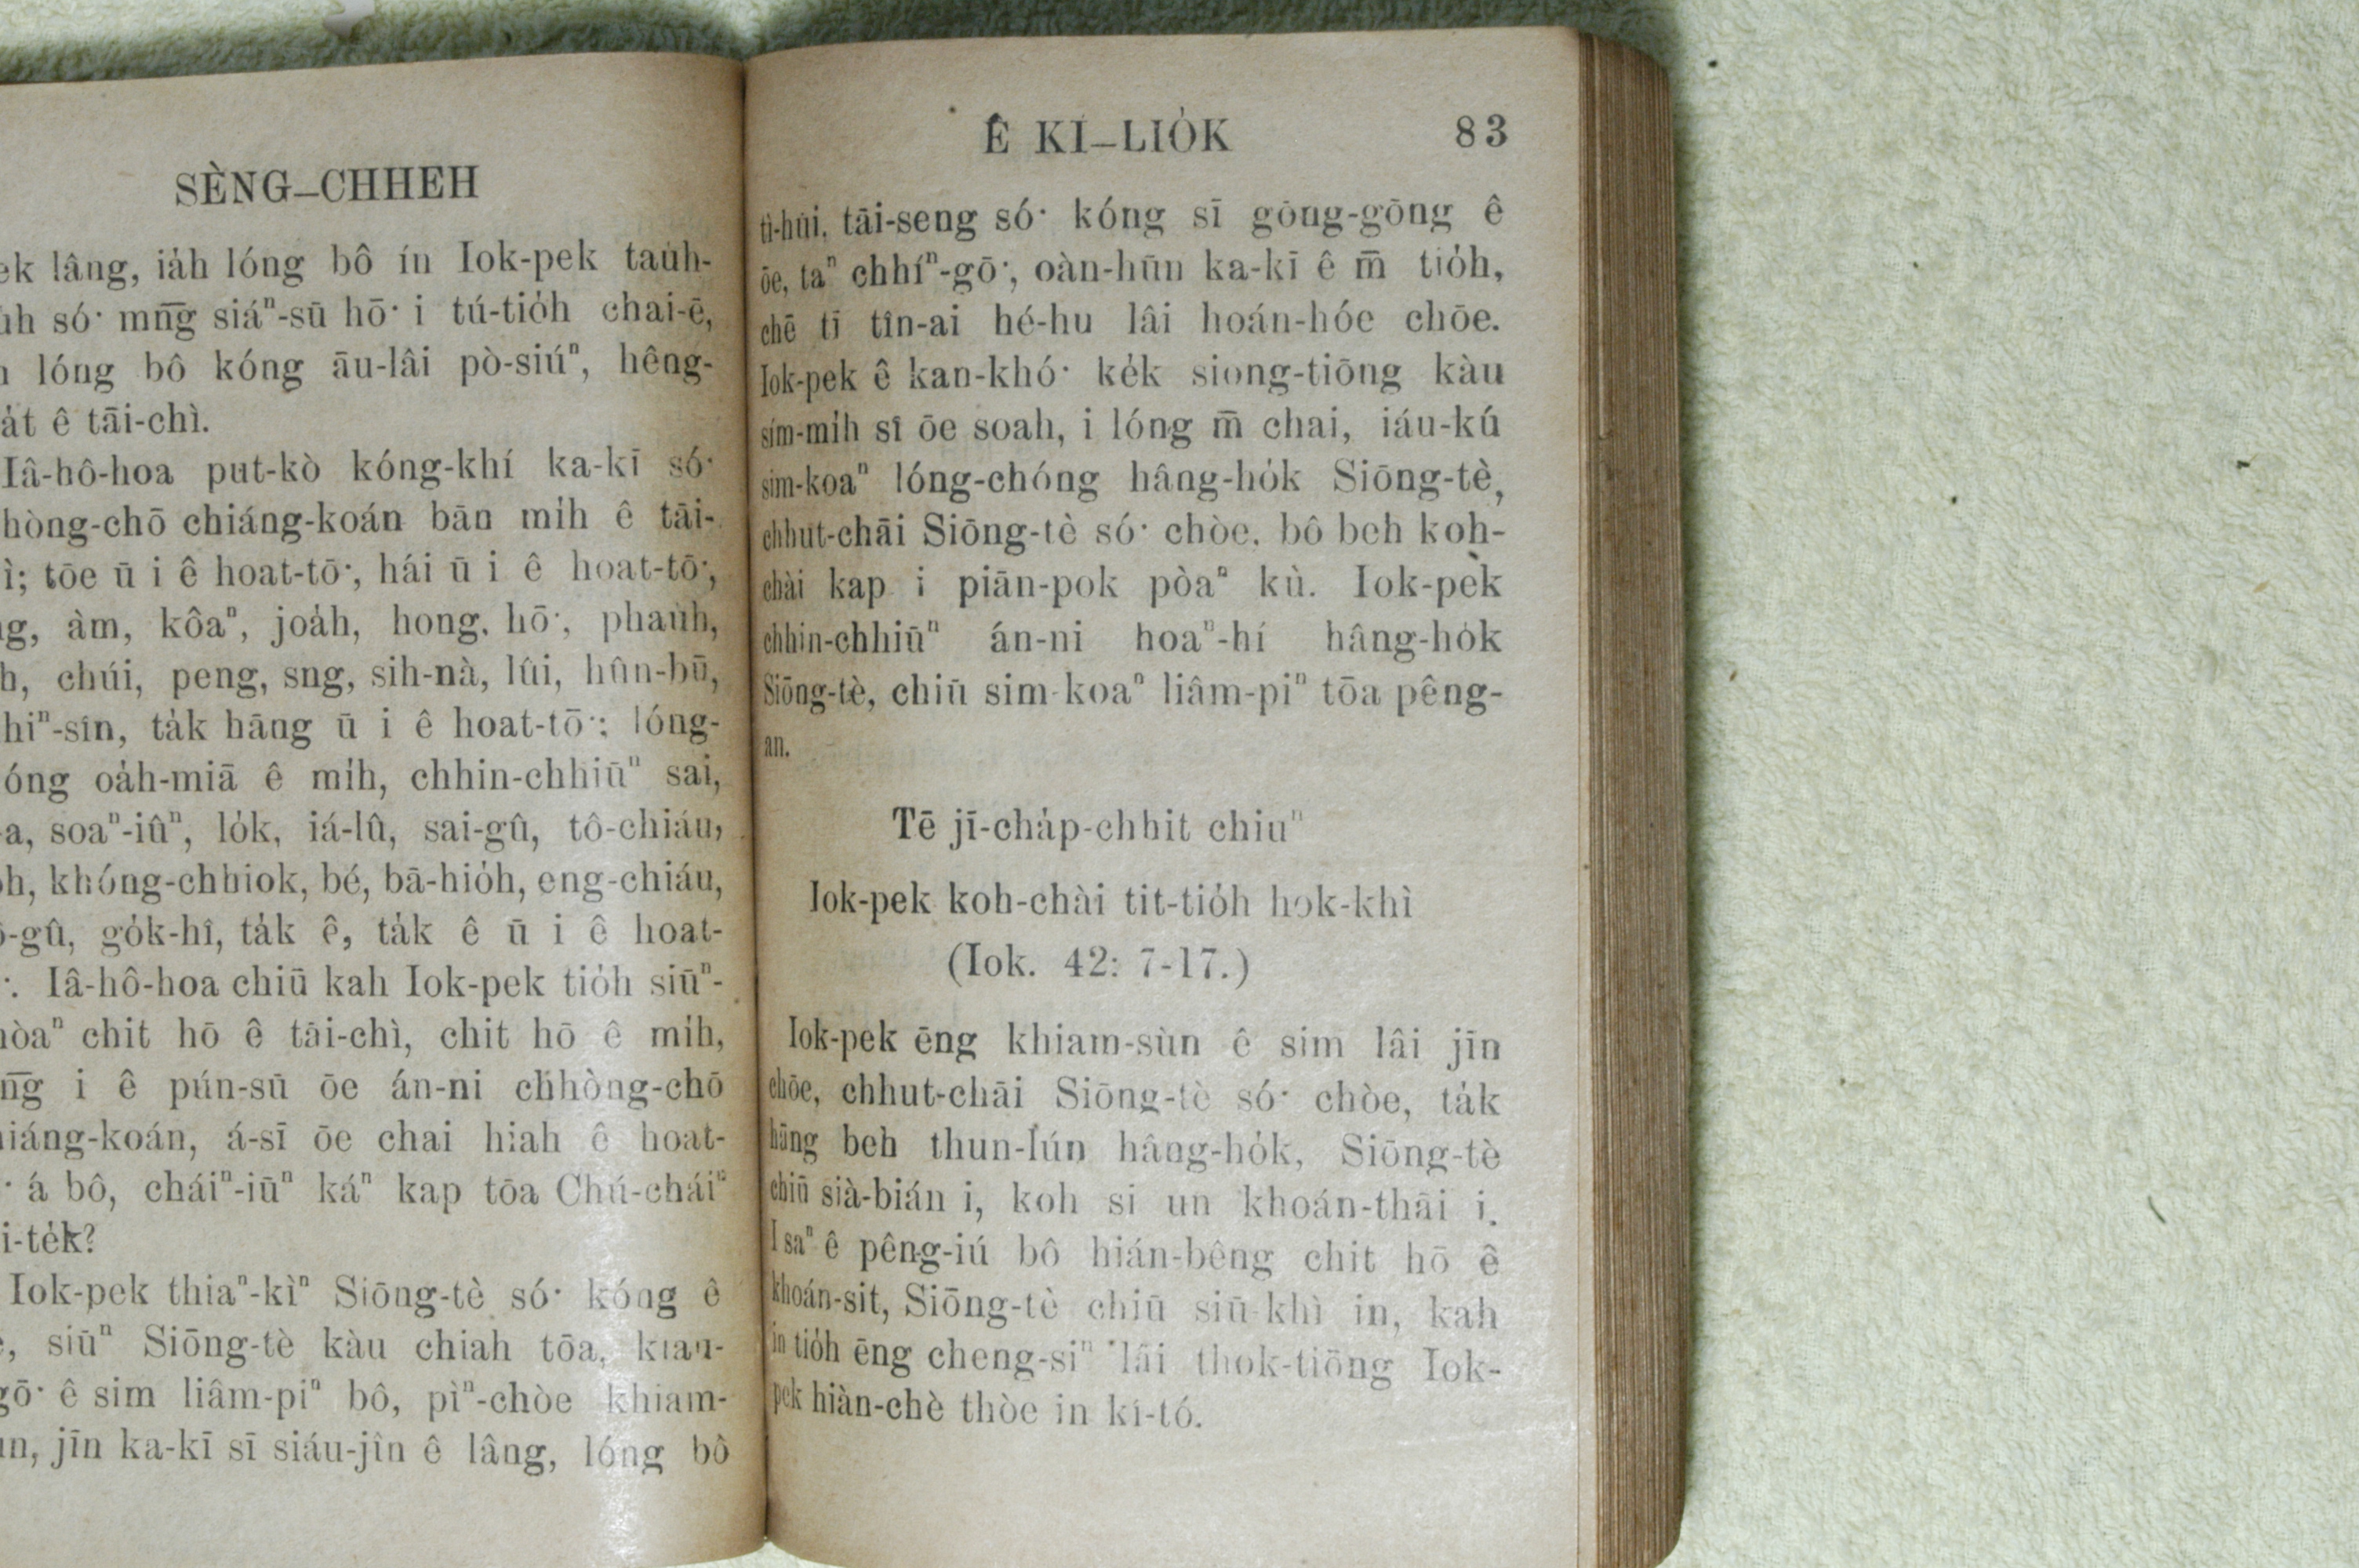 SÈNG–CHHEH
lâng, ia̍h lóng bô ín Iok-pek tau̍h-
só͘ mn̄g siáⁿ-sū hō͘ i tú-tio̍h chai-ē,
lóng bô kóng āu-lâi pò-siúⁿ, hêng-
ê tāi-chì.
Iâ-hô-hoa put-kò kóng-khí ka-kī só͘
chiáng-koán bān mi̍h ê tāi-
tōe ū i ê hoat-tō͘, hái ū i ê hoat-tō͘,
àm, kôaⁿ, joa̍h, hong, hō͘, phau̍h,
chúi, peng, sng, sih-nà, lûi, hûn-bū,
ta̍k hāng ū i ê hoat-tō͘; lóng-
oa̍h-miā ê mi̍h, chhin-chhiūⁿ sai,
soaⁿ-iûⁿ, lo̍k, iá-lû, sai-gû, tô-chiáu,
khóng-chhiok, bé, bā-hio̍h, eng-chiáu,
go̍k-hî, ta̍k ê, ta̍k ê ū i ê hoat-
Iâ-hô-hoa chiū kah Iok-pek tio̍h siūⁿ-
chit hō ê tāi-chì, chit hō ê mi̍h,
i ê pún-sū ōe án-ni chhòng-chō
á-sī ōe chai hiah ê hoat-
á bô, cháiⁿ-iūⁿ káⁿ kap tōa Chú-cháiⁿ
Iok-pek thiaⁿ-kìⁿ Siōng-tè só͘ kóng ê
siūⁿ Siōng-tè kàu chiah tōa, kiau-
ê sim liâm-piⁿ bô, pìⁿ-chòe khiam-
jīn ka-kī sī siáu-jîn ê lâng, lóng bô
Ê KÌ–LIO̍K 83
tì-hūi, tāi-seng só͘ kóng sī gōng-gōng ê
ōe, taⁿ chhíⁿ-gō͘, oàn-hūn ka-kī ê m̄ tio̍h,
chē tī tîn-ai hé-hu lâi hoán-hóe chōe.
Iok-pek ê kan-khó͘ ke̍k siong-tiōng kàu
sím-mi̍h sî ōe soah, i lóng m̄ chai, iáu-kú
sim-koaⁿ lóng-chóng hâng-ho̍k Siōng-tè,
chhut-chāi Siōng-tè só͘ chòe, bô beh koh-
chài kap i piān-pok pòaⁿ kù. Iok-pek
chhin-chhiūⁿ án-ni hoaⁿ-hí hâng-ho̍k
Siōng-tè, chiū sim-koaⁿ liâm-piⁿ tōa pêng-
an.
Tē jī-cha̍p-chhit chiuⁿ
Iok-pek koh-chài tit-tio̍h hok-khì
(Iok. 42: 7-17.)
Iok-pek ēng khiam-sùn ê sim lâi jīn
chōe, chhut-chāi Siōng-tè só͘ chòe, ta̍k
hāng beh thun-lún hâng-ho̍k, Siōng-tè
chiū sià-bián i, koh si un khoán-thāi i.
I saⁿ ê pêng-iú bô hián-bêng chit hō ê
khoán-sit, Siōng-tè chiū siū-khì in, kah
in tio̍h ēng cheng-siⁿ lâi thok-tiōng Iok-
pek hiàn-chè thòe in kî-tó.